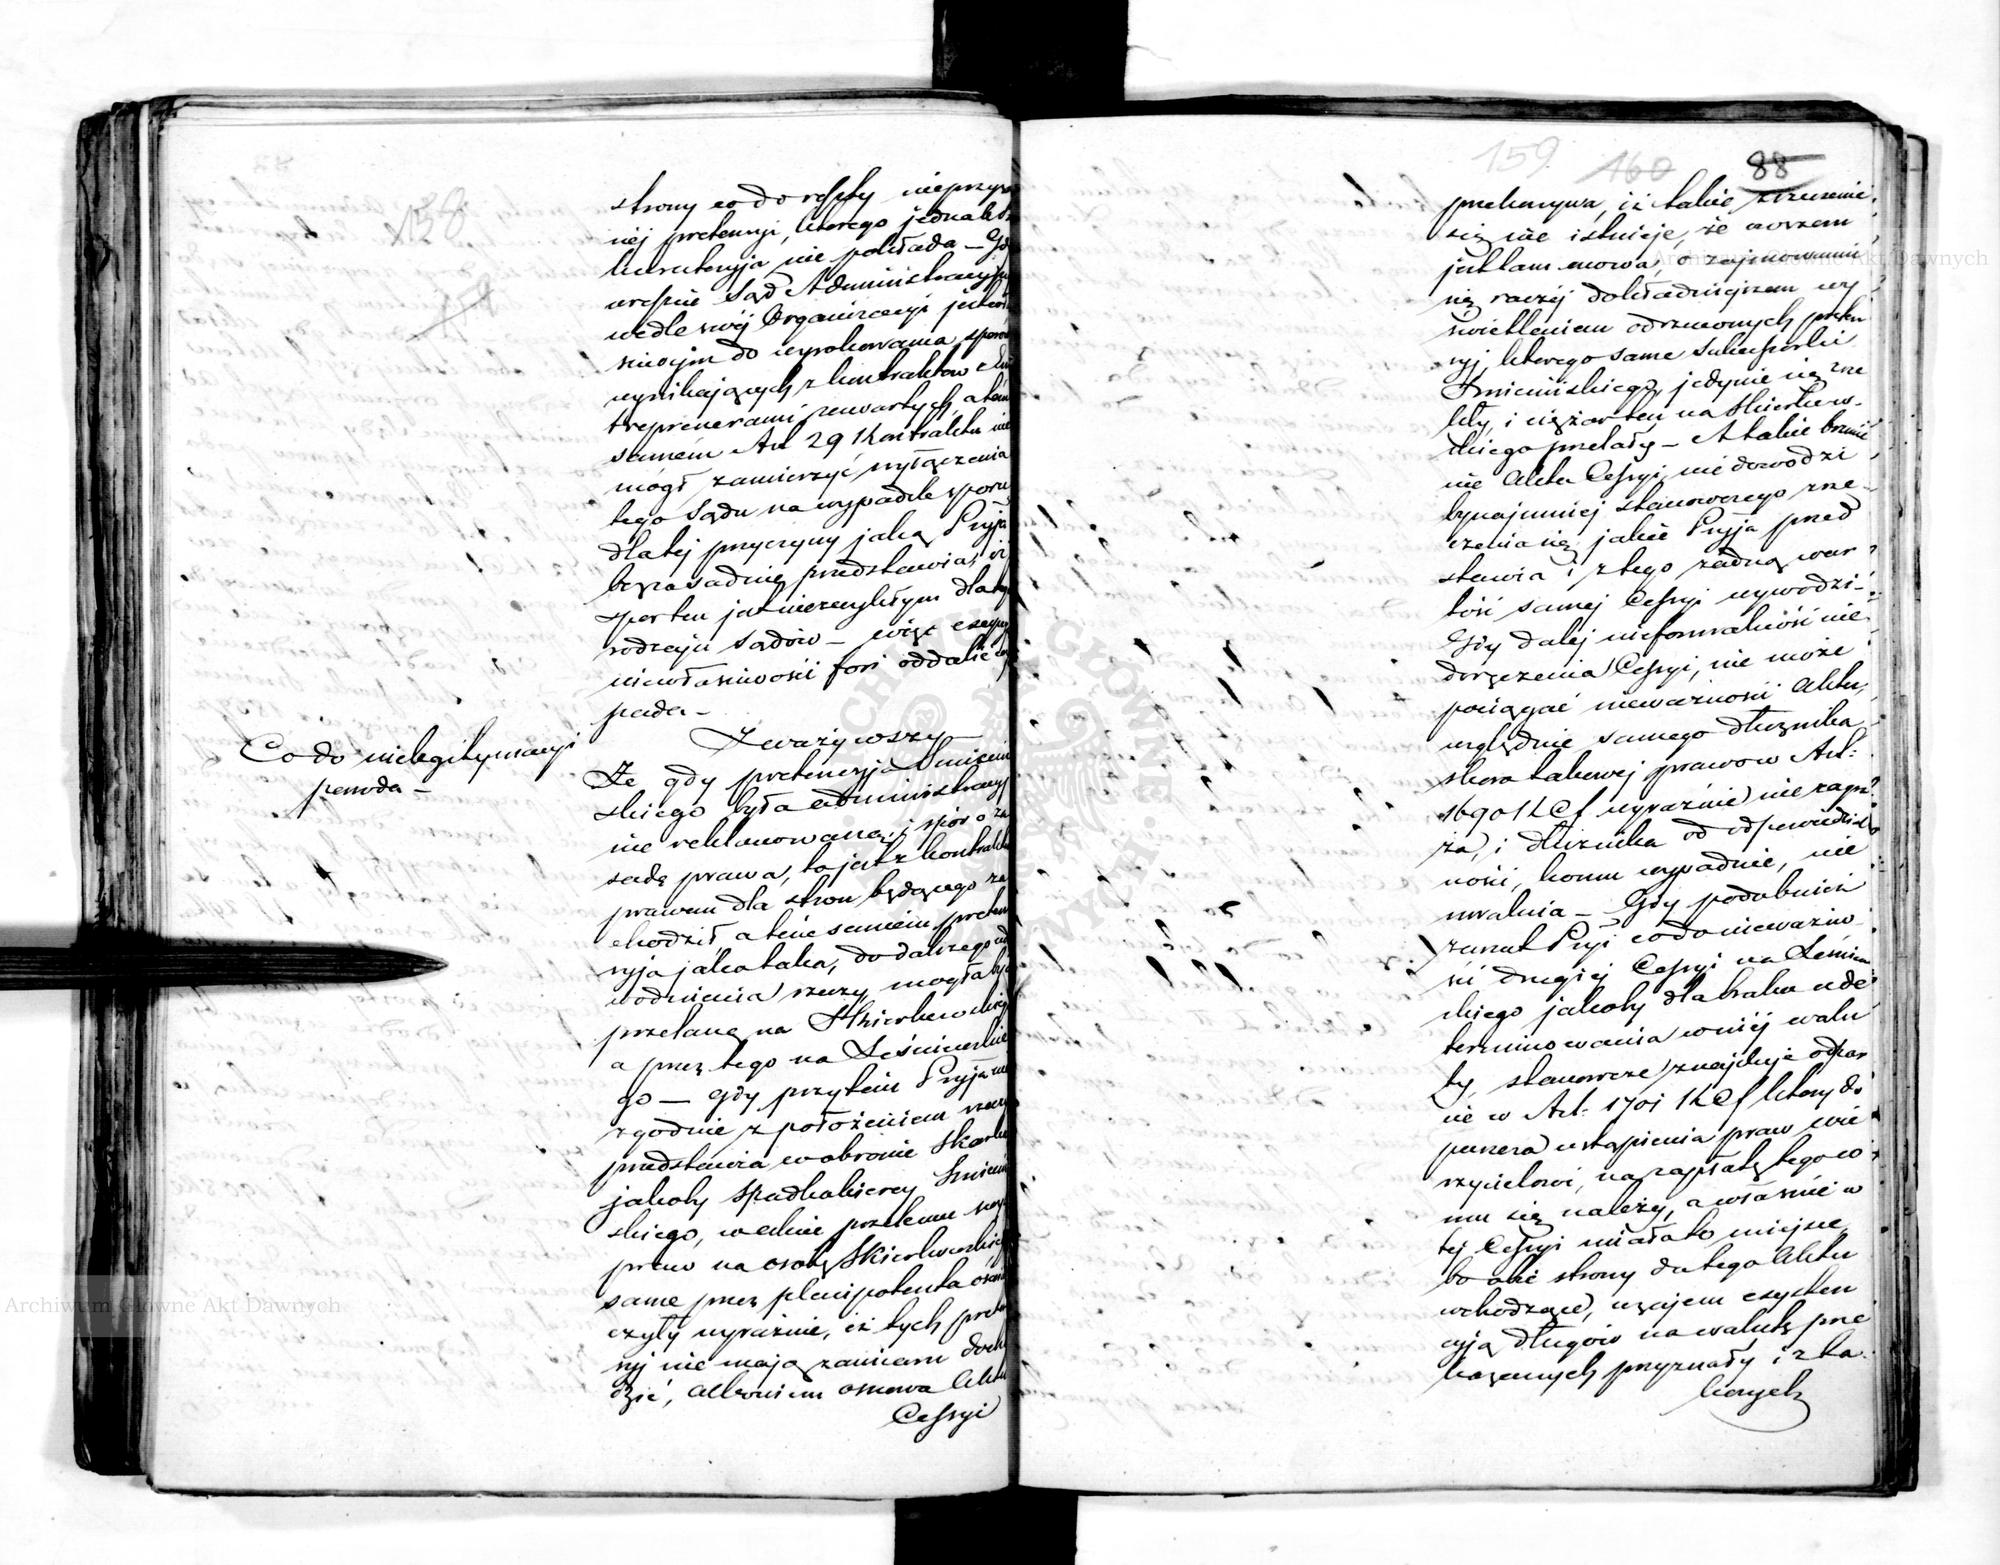 158
strony co do reszty nieprzyzna
néj pretensyi, którego jednak
kuratorya nie pokłada — Gdy
wreście Sąd Administracyjny
wedle swéj Organizacyi jest wła
snucym do wyrokowania sporów
wynikających z kontraktów z En
treprenerami zawartych, a tém
samém Art 29 Kontraktu nie
mógł zamierzyć wyłączenia
tego Sądu na wypadek sporu
dla téj przyczyny jaką Pryja
bezzasadnie przedstawia, iż
spor ten jest niezwykłym dla tego
rodzaju Sądów — więc excepcyą
niewłaściwości fori oddalić wy
pada —
Co do nielegitymacyi
powoda —
Zważywszy —
Że gdy pretensyja Smiciń
skiego była administracyj
nie reklamowaną, i spór o za
sadę prawa, to jest z kontraktu
prawem dla stron będącego za
chodził, a témsamém preten
syja jako taka, do dalszego udo
wodnienia rzeczy mogła być
przelaną na Skierkowskiego
a przez tego na Leśniewskie
go — gdy przytém Pryja nie
zgodnie z położeniem rzeczy
przedstawia w obronie Skarbu
jakoby Spadkobiercy Smiciń
skiego, w akcie przelewu swych
praw na osobę Skierkowskiego
same przez plenipotenta oświad
czyły wyraźnie, iż tych preten
syj nie mają zamiaru docho
dzić, albowiem osnowa Aktu
Cessyi
159 160 88
przekonywa, iż takie zrzeczenie
się nie istnieje, że owszem
jest tam mowa, o zajmowaniu
się raczéj dokładniejszem wy
świetleniem odrzuconych preten
syj, którego same Sukcessorki
Smicińskiego, jedynie się zrze
kły, i ciężar ten na Skierkow-
skiego przelały — A takie brzmie
nie Aktu Cessyi, nie dowodzi
bynajmniej stanowczego zrze-
czenia się, jakie Pryja przed
stawia i z tego żadną war
tość samej Cessyi wywodzi —
Gdy dalej nieformalność nie
doręczenia Cessyi, nie może
pociągać nieważności Aktu,
względnie samego dłużnika
skoro takowej prawo w Art:
1690 KCf wyraźnie nie zagra
ża, i dłużnika od odpowiedzial
ności, komu wypadnie, nie
uwalnia — Gdy podobnież
zarzut Pryi co do nieważno
ści drugiéj Cessyi na Leśniew
skiego jakoby dla braku ude
terminowania w niéj walu
ty, stanowcze znajduje odpar
cie w Art: 1701 KCf który do
puszcza ustąpienia praw wie
rzycielowi, na zapłatę tego co
mu się należy, a właśnie w
téj Cessyi miało to miejsce,
bo obie strony do tego Aktu
wchodzące, wzajem exysten
cyją długów na walutę prze
kazanych przyznały i z ta
kowych